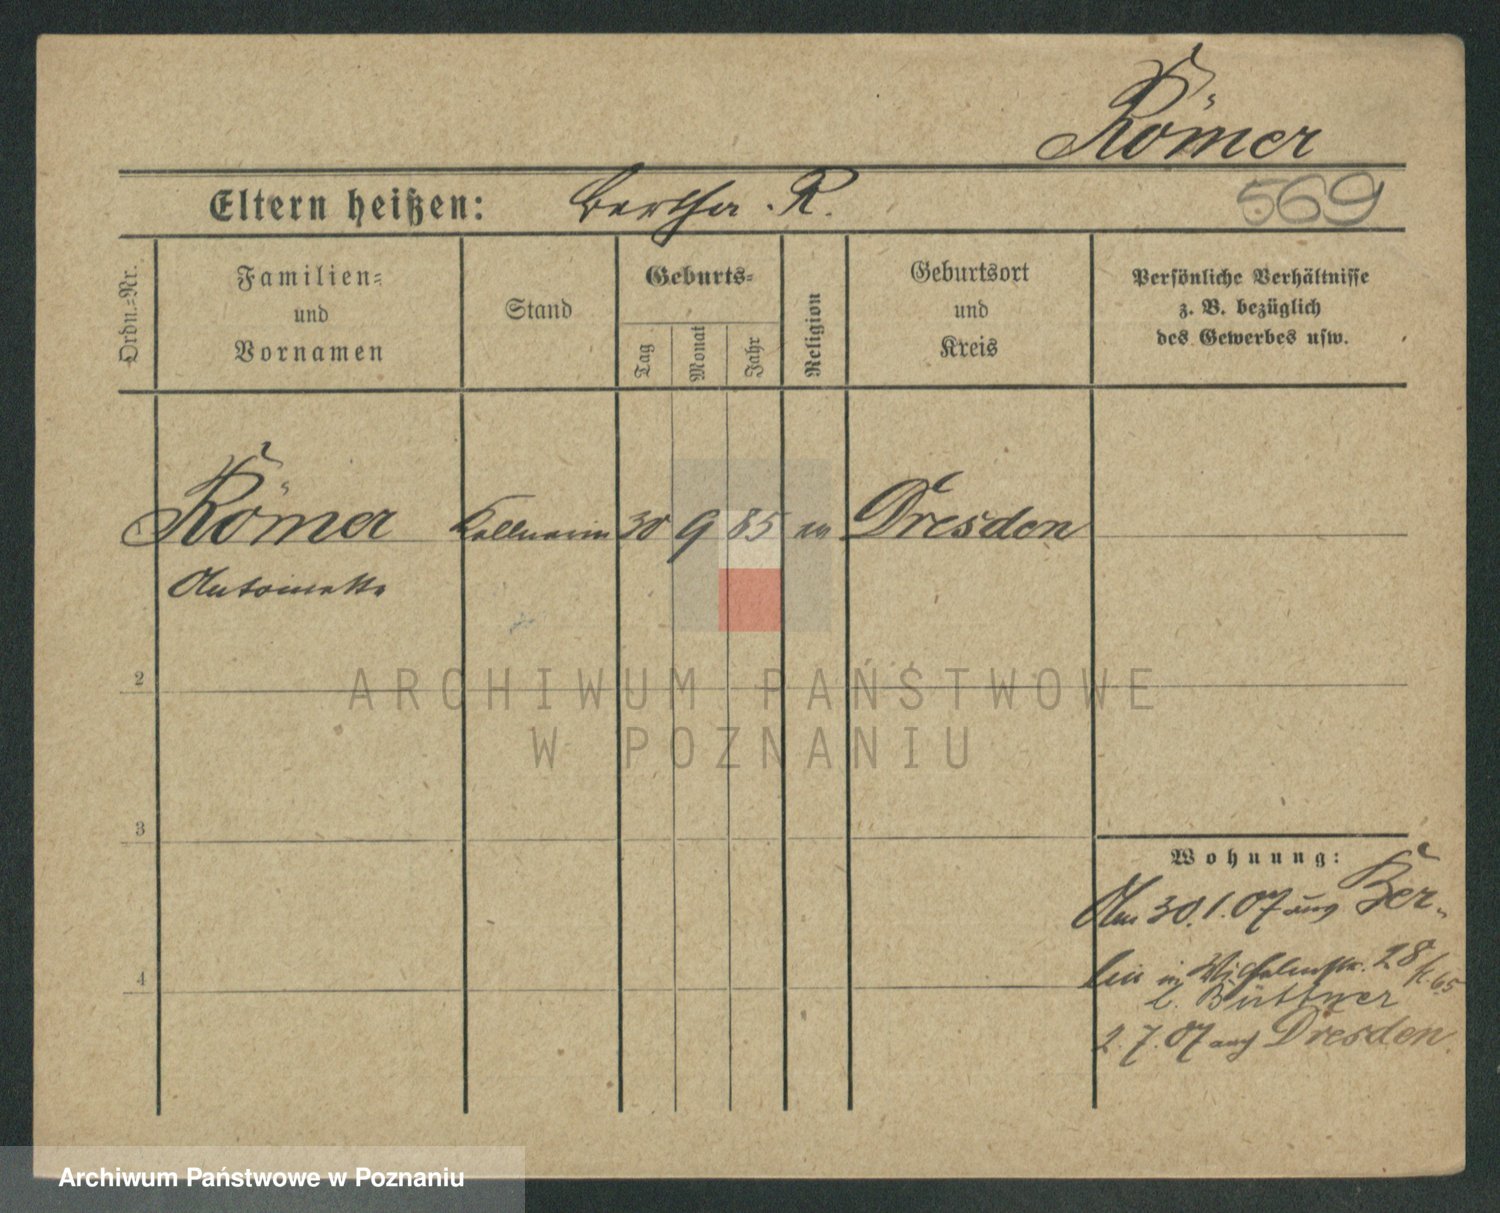 Römer
Eltern heißen: Bertha. R.
569
Ordn.-Nr.
Familien-
und
Vornamen
Stand
Geburts-
Tag
Monat
Jahr
Religion
Geburtsort
und
Kreis
Persönliche Verhältnisse
z. B. bezüglich
des Gewerbes usw.
Römer Kellnerin 30 9 85 Dresden
Antoinette
2
ARCHIWUM PAŃSTWOWE
W POZNANIU
3
Wohnung:
Am 30.1.07 aus Ber-
lin in Wilhelmstr. 28
b. Büttner
4
2.7.07 auf Dresden.
Archiwum Państwowe w Poznaniu